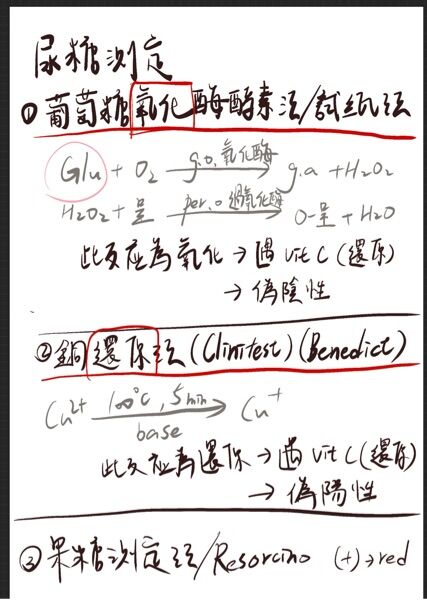 尿糖測定
① 葡萄糖氧化酶酵素法/試紙法
Glu + O₂ —g.o.氧化酶→ g.a + H₂O₂
H₂O₂ + 呈 —per.o 過氧化酶→ O-呈 + H₂O
此反应為氧化 → 遇 vit C (還原)
→ 偽陰性
② 銅還原法 (Clinitest) (Benedict)
Cu²⁺ —100°C, 5min base→ Cu⁺
此反应為還原 → 遇 vit C (還原)
→ 偽陽性
③ 果糖測定法/Resorcino (+)→red